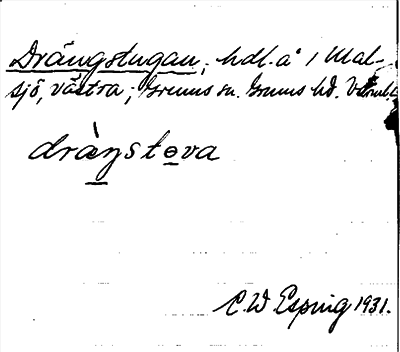 Drängstugan, hdl. å 1 Mal-
sjö, västra; Grums sn. Grums hd. Värml.
dràŋstova
C. W. Esping 1931.